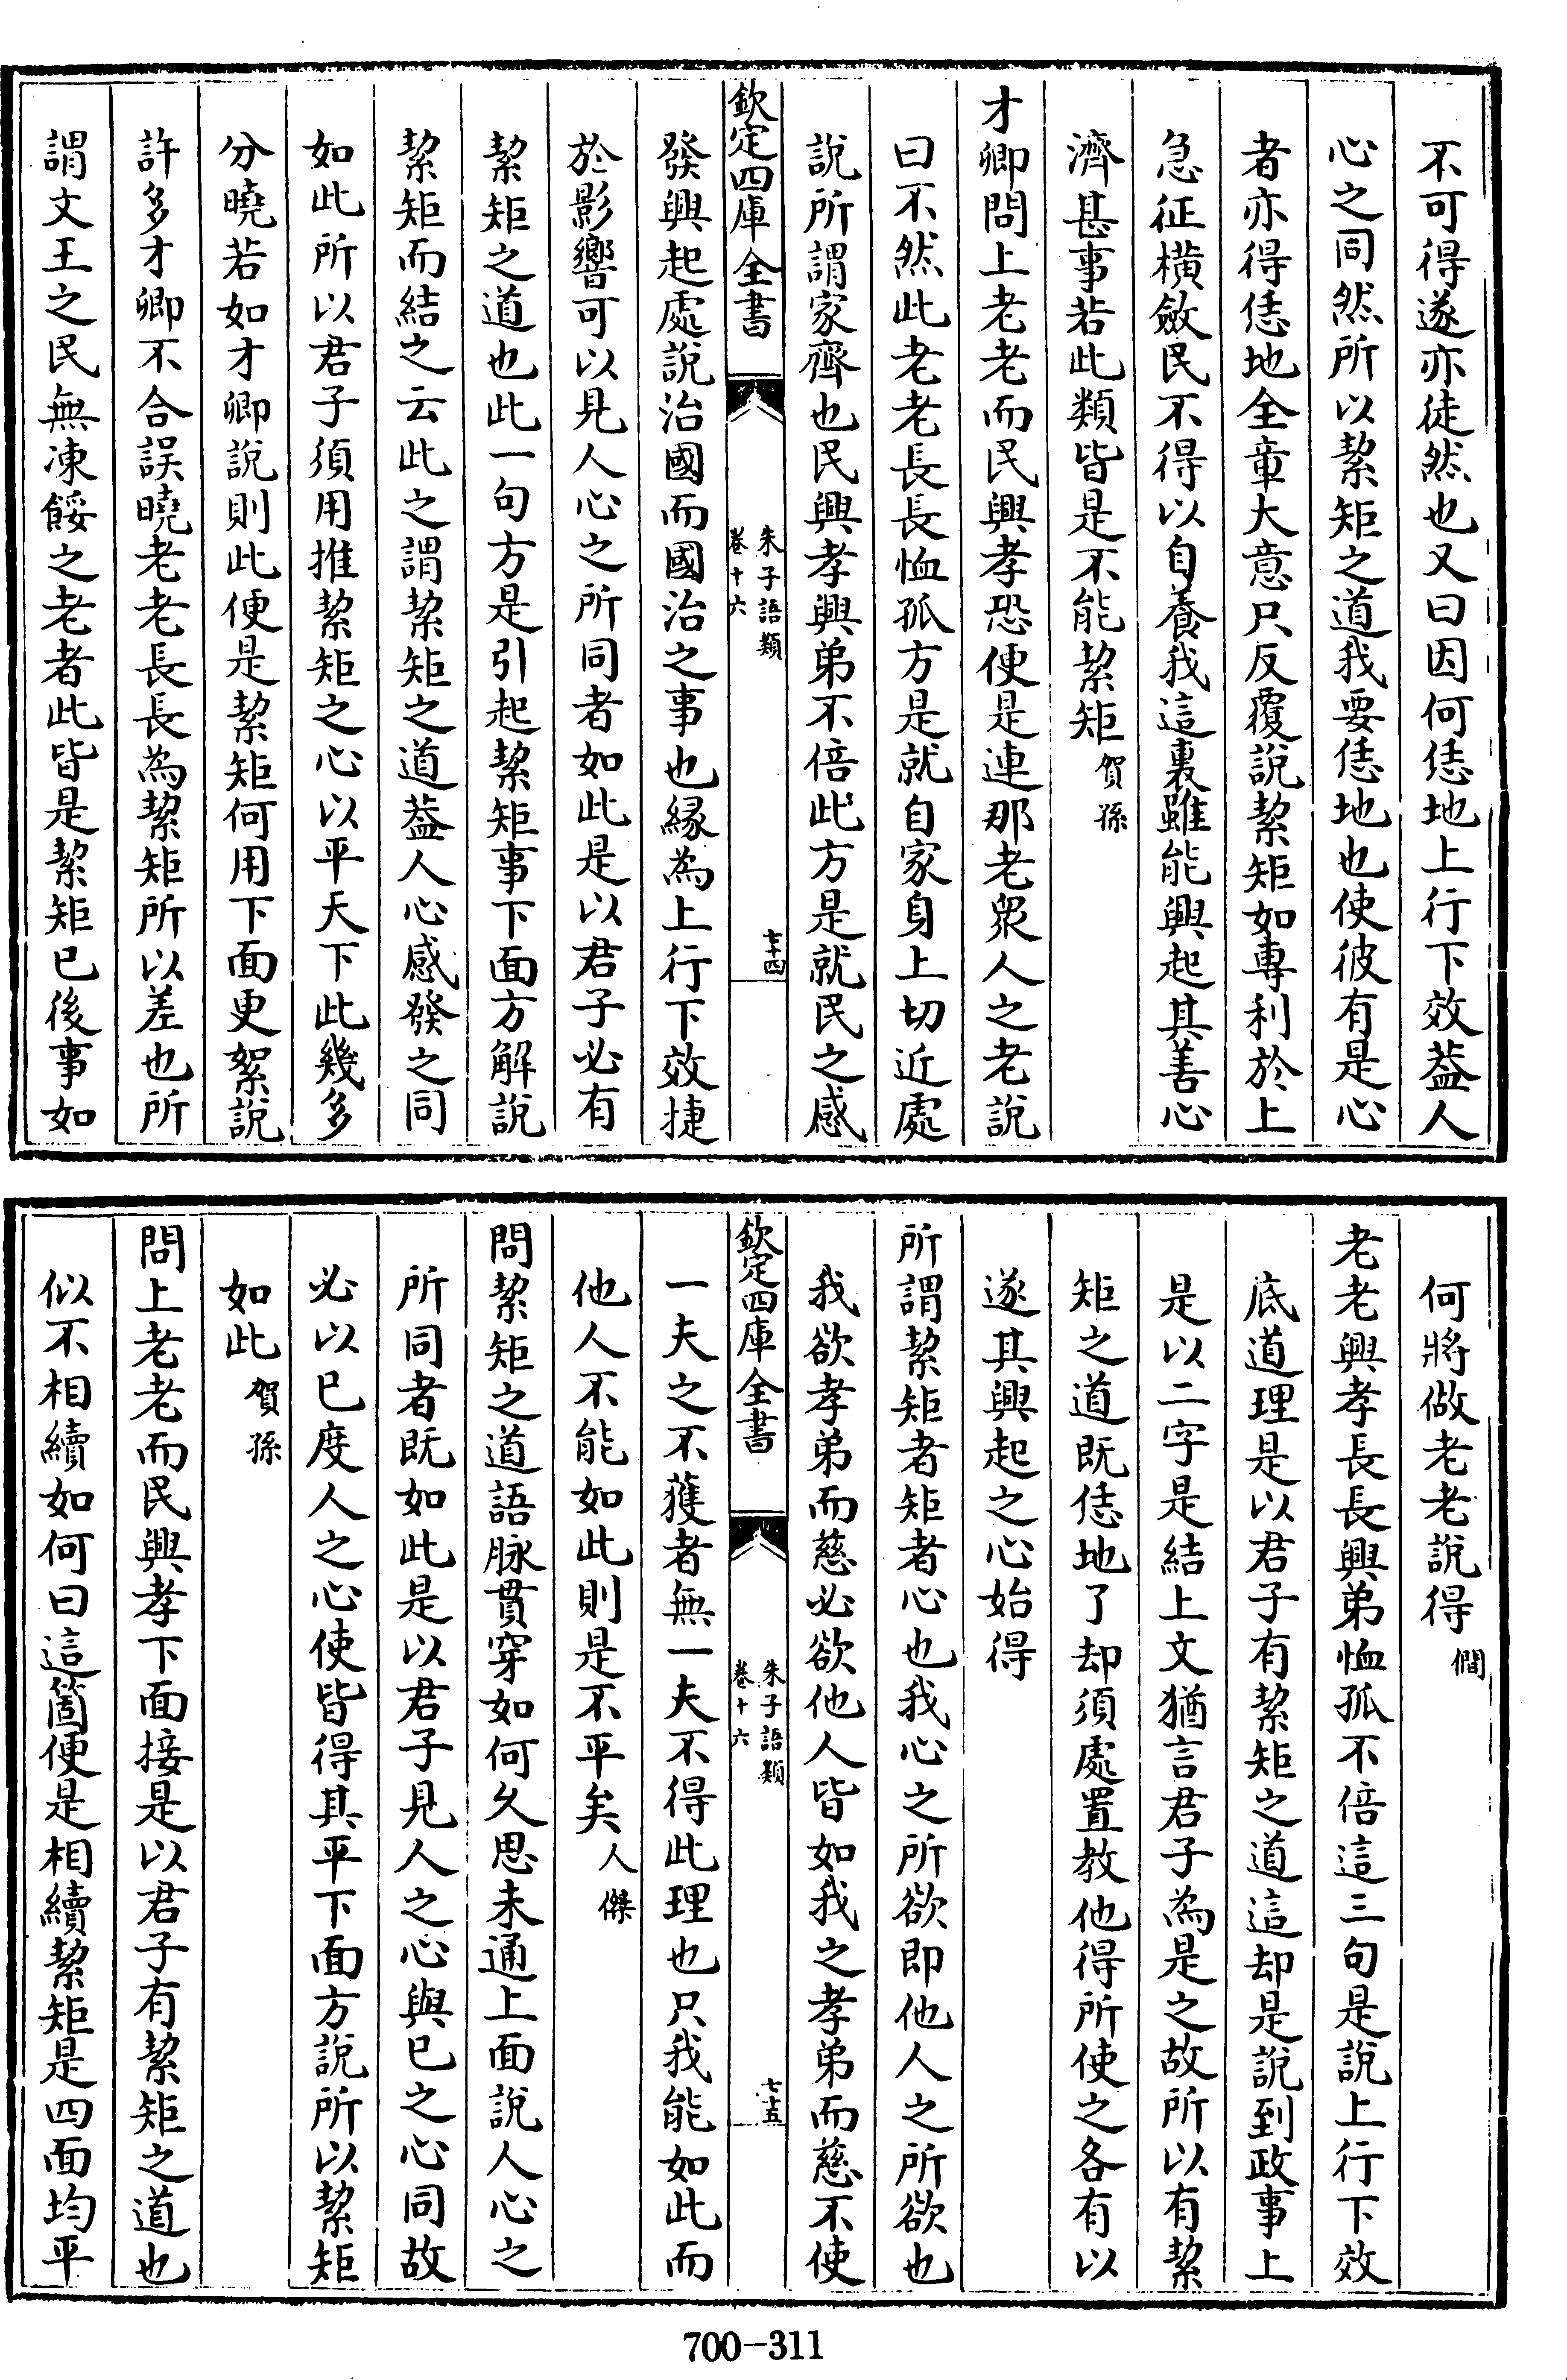 不可得遂亦徒然也又曰因何恁地上行下效葢人
心之同然所以絜矩之道我要恁地也使彼有是心
者亦得恁地全章大意只反覆說絜矩如專利於上
急征橫斂民不得以自養我這裏雖能興起其善心
濟甚事若此類皆是不能絜矩賀孫
才卿問上老老而民興孝恐便是連那老衆人之老說
曰不然此老老長長恤孤方是就自家身上切近處
說所謂家齊也民興孝興弟不倍此方是就民之感
欽定四庫全書
朱子語類
卷十六
七十四
發興起處說治國而國治之事也緣為上行下效捷
於影響可以見人心之所同者如此是以君子必有
絜矩之道也此一句方是引起絜矩事下面方解說
絜矩而結之云此之謂絜矩之道葢人心感發之同
如此所以君子須用推絜矩之心以平天下此幾多
分曉若如才卿說則此便是絜矩何用下面更絮說
許多才卿不合誤曉老老長長為絜矩所以差也所
謂文王之民無凍餒之老者此皆是絜矩已後事如
何將做老老說得僩
老老興孝長長興弟恤孤不倍這三句是說上行下效
底道理是以君子有絜矩之道這却是說到政事上
是以二字是結上文猶言君子為是之故所以有絜
矩之道既恁地了却須處置教他得所使之各有以
遂其興起之心始得
所謂絜矩者矩者心也我心之所欲即他人之所欲也
我欲孝弟而慈必欲他人皆如我之孝弟而慈不使
欽定四庫全書
朱子語類
卷十六
七十五
一夫之不獲者無一夫不得此理也只我能如此而
他人不能如此則是不平矣人傑
問絜矩之道語脉貫穿如何久思未通上面說人心之
所同者既如此是以君子見人之心與已之心同故
必以已度人之心使皆得其平下面方說所以絜矩
如此賀孫
問上老老而民興孝下面接是以君子有絜矩之道也
似不相續如何曰這箇便是相續絜矩是四面均平
700-311